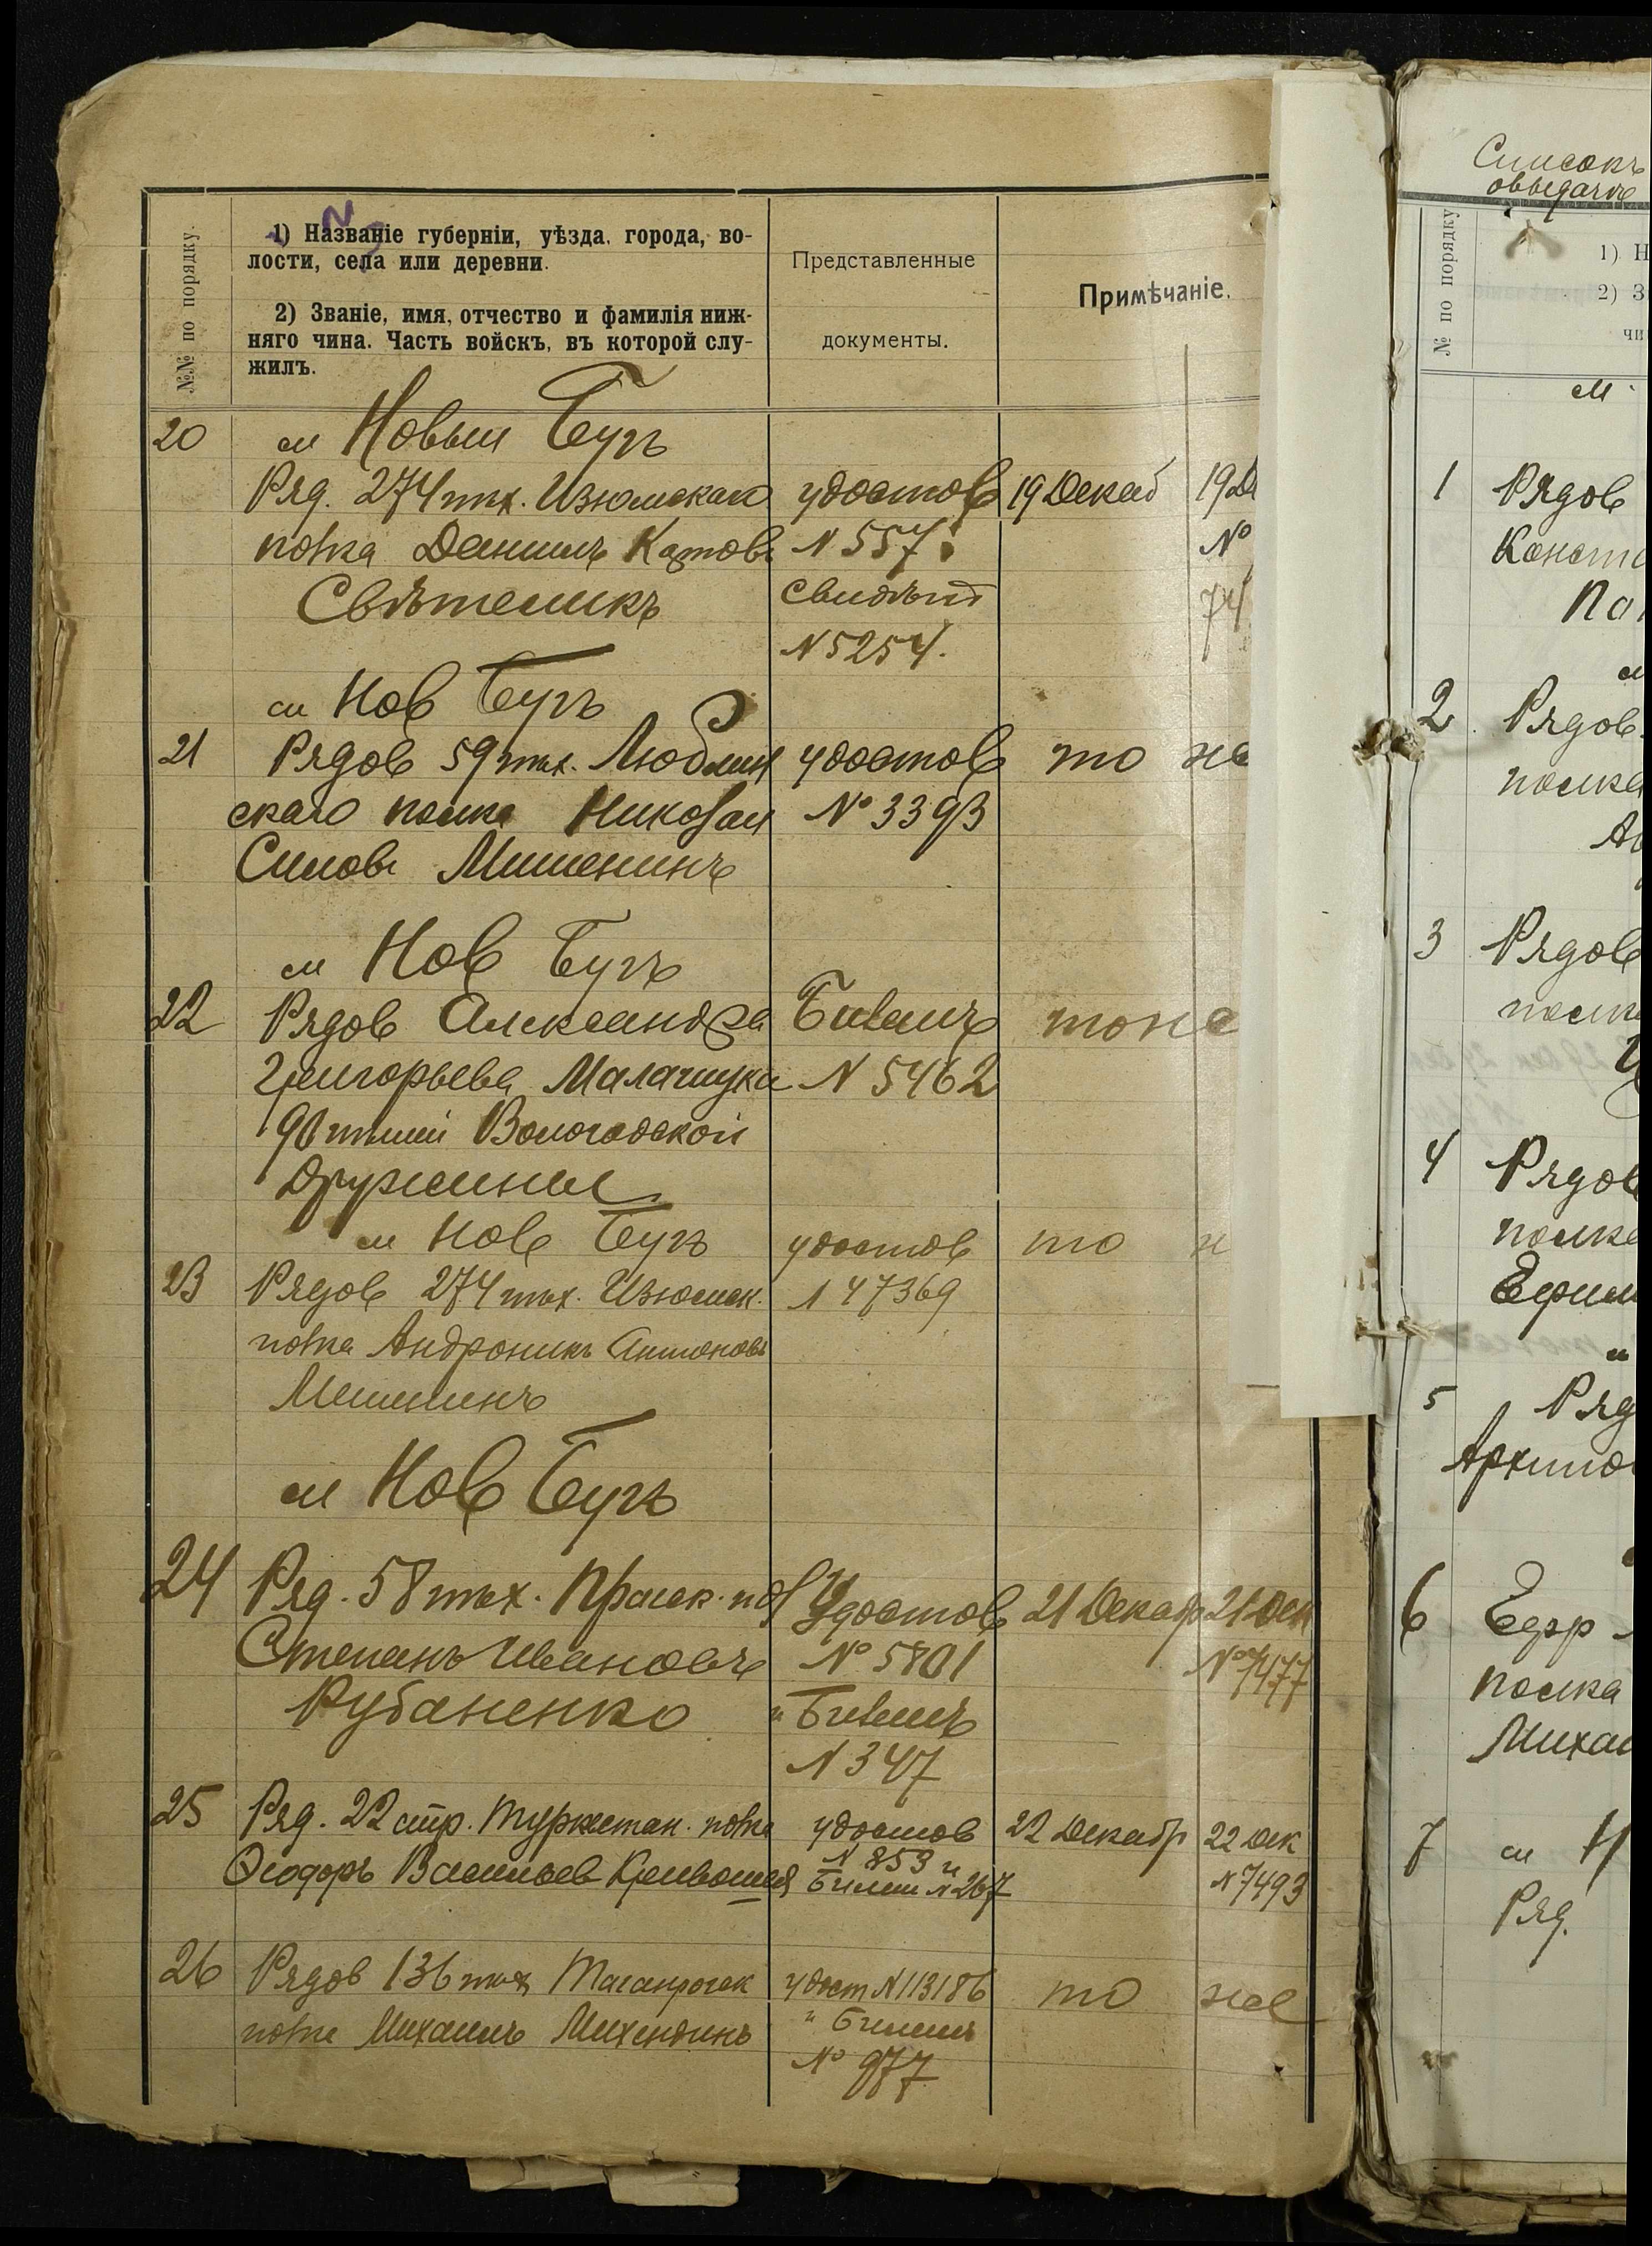 №№ по порядку.
1) Названіе губерніи, уѣзда, города, во-
лости, села или деревни.
2) Званіе, имя, отчество и фамилія ниж-
няго чина. Часть войскъ, въ которой слу-
жилъ.
Представленные
документы.
Примѣчаніе.
20 м Новый Бугъ
Ряд. 274 пѣх. Изюмскаго удостов 19 Декаб 19 Д
полка Даниилъ Катовъ N 557 и №
Свѣтеликъ свидѣт 74
N 5254.
м Нов Бугъ
21 Рядов 59 пѣх. Люблин удостов то же
скаго полка Николай № 3393
Силовъ Мишенинъ
м Нов Бугъ
22 Рядов Александръ Билетъ тоже
Григорьевъ Малачукъ N 5462
90 пѣшей Вологодской
Дружины
м Нов Бугъ удостов то ж
23 Рядов 274 пѣх. Изюмск. N 47369
полка Андроникъ Антоновъ
Мешининъ
м Нов Бугъ
24 Ряд. 58 пѣх. Прагск. пол Удостов 21 Декабр 21 Дек
Степанъ Ивановъ № 5801 № 7477
Рубаненко и Билетъ
N 347
25 Ряд. 22 стр. Туркестан. полка удостов 22 Декабр 22 Дек
Ѳеодоръ Васильев Кривошея N 859 и Билет N 267 N 7493
26 Рядов 136 пѣх Таганрогск удост N 113186 то же
полка Михаилъ и Билетъ
№ 977
Списокъ
о выдачѣ
№ по порядку
1) Н
2) З
чи
м
1 Рядов
Конст
2 Рядов.
полка
3 Рядов
полка
4 Рядов
полка
Ефим
5 Ряд
Архипо
6 Ефр
полка
Миха
7 м Н
Ряд.